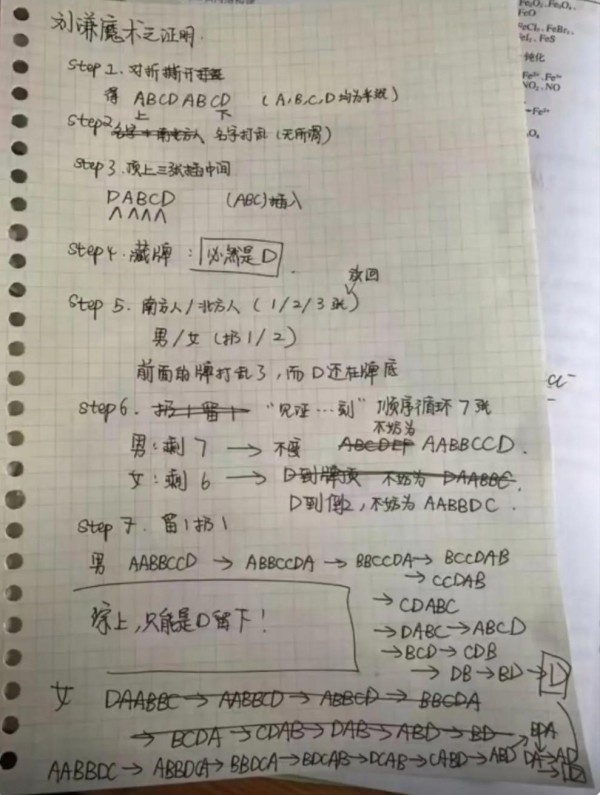 刘谦魔术之证明.
Step 1. 对折撕开
得 ABCD ABCD (A,B,C,D均为半纸)
上 下
Step 2. 名字打乱(无所谓)
Step 3. 顶上三张插中间
DABCD (ABC)插入
Step 4. 藏牌: 必然是D.
放回
Step 5. 南方人/北方人 (1/2/3张)
男/女 (扔1/2)
前面的牌打乱了,而D还在牌底
Step 6. 扔1留1 "见证…刻" 顺序循环7张
不妨为
男:剩7 → 不妨 ABCDEF AABBCCD.
女:剩6 → D到牌顶 不妨为 DAABBC.
D到倒2,不妨为AABBDC.
Step 7. 留1扔1
男 AABBCCD → ABBCCDA → BBCCDA → BCCDAB
→ CCDAB
→ CDABC
→ DABC → ABCD
→ BCD → CDB
→ DB → BD → D
综上,只能是D留下!
女 DAABBC → AABBCD → ABBCD → BBCDA
→ BCDA → CDAB → DAB → ABD → BD
BDA
AABBDC → ABBDCA → BBDCA → BDCAB → DCAB → CABD → ABD DA → AD
→ D